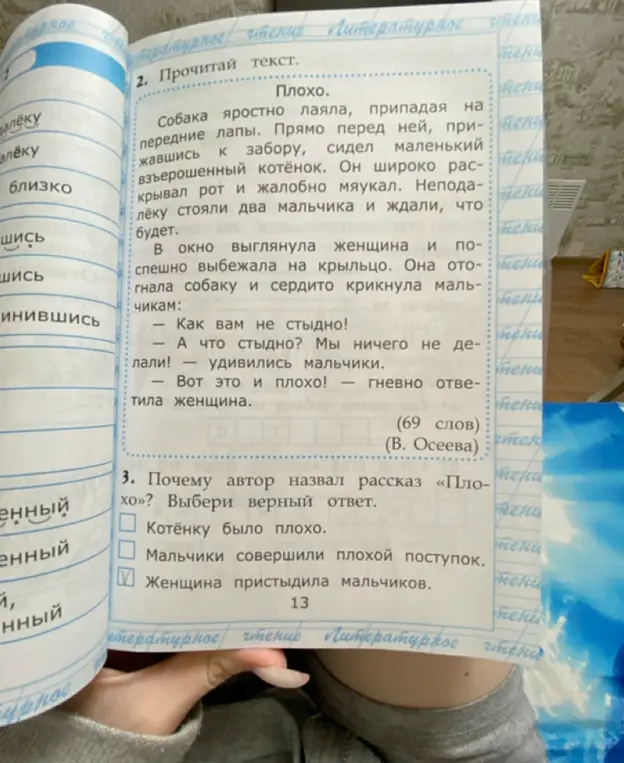 Литературное чтение Литературное чтение
2. Прочитай текст.
Плохо.
Собака яростно лаяла, припадая на
передние лапы. Прямо перед ней, при-
жавшись к забору, сидел маленький
взъерошенный котёнок. Он широко рас-
крывал рот и жалобно мяукал. Непода-
лёку стояли два мальчика и ждали, что
будет.
В окно выглянула женщина и по-
спешно выбежала на крыльцо. Она ото-
гнала собаку и сердито крикнула маль-
чикам:
— Как вам не стыдно!
— А что стыдно? Мы ничего не де-
лали! — удивились мальчики.
— Вот это и плохо! — гневно отве-
тила женщина.
(69 слов)
(В. Осеева)
3. Почему автор назвал рассказ «Пло-
хо»? Выбери верный ответ.
Котёнку было плохо.
Мальчики совершили плохой поступок.
V Женщина пристыдила мальчиков.
13
Литературное чтение Литературное чтение
алёку
алёку
близко
шись
шись
инившись
енный
енный
й,
нный